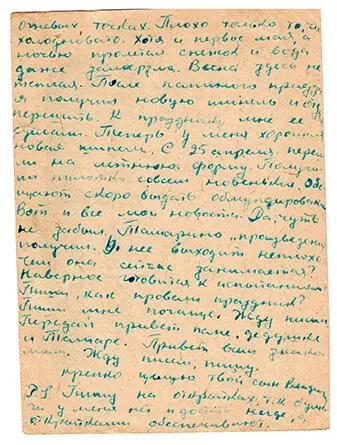 огневых точках. Плохо только то, что
холодновато. Хотя и первое мая а
ночью пролетал снежок и вода
даже замерзла. Весна здесь не
теплая. После папиного приезда
я получил новую шинель и отдал
перешить. К празднику мне ее
сделали. Теперь у меня хорошая
новая шинель. С 25 апреля переш
ли на летнюю форму. Получи
ли пилотки совсем новенькие. Обе
щают скоро выдать обмундирован
Вот и все мои новости. Да, чуть
не забыл, Тамарино "произведение"
получил. У нее выходит неплохо
Чем она сейчас занимается?
Наверное готовится к испытаниям
Пиши, как провели праздник?
Пиши мне почаще. Жду писем
Передай привет папе, дедушке
и Тамаре. Привет всем знако
мым. Жду писем, пишу.
крепко целую твой сын
P.S. Пишу на открытках, т.к. бумаги
у меня нет и достать негде, а
открытками обеспечивают.